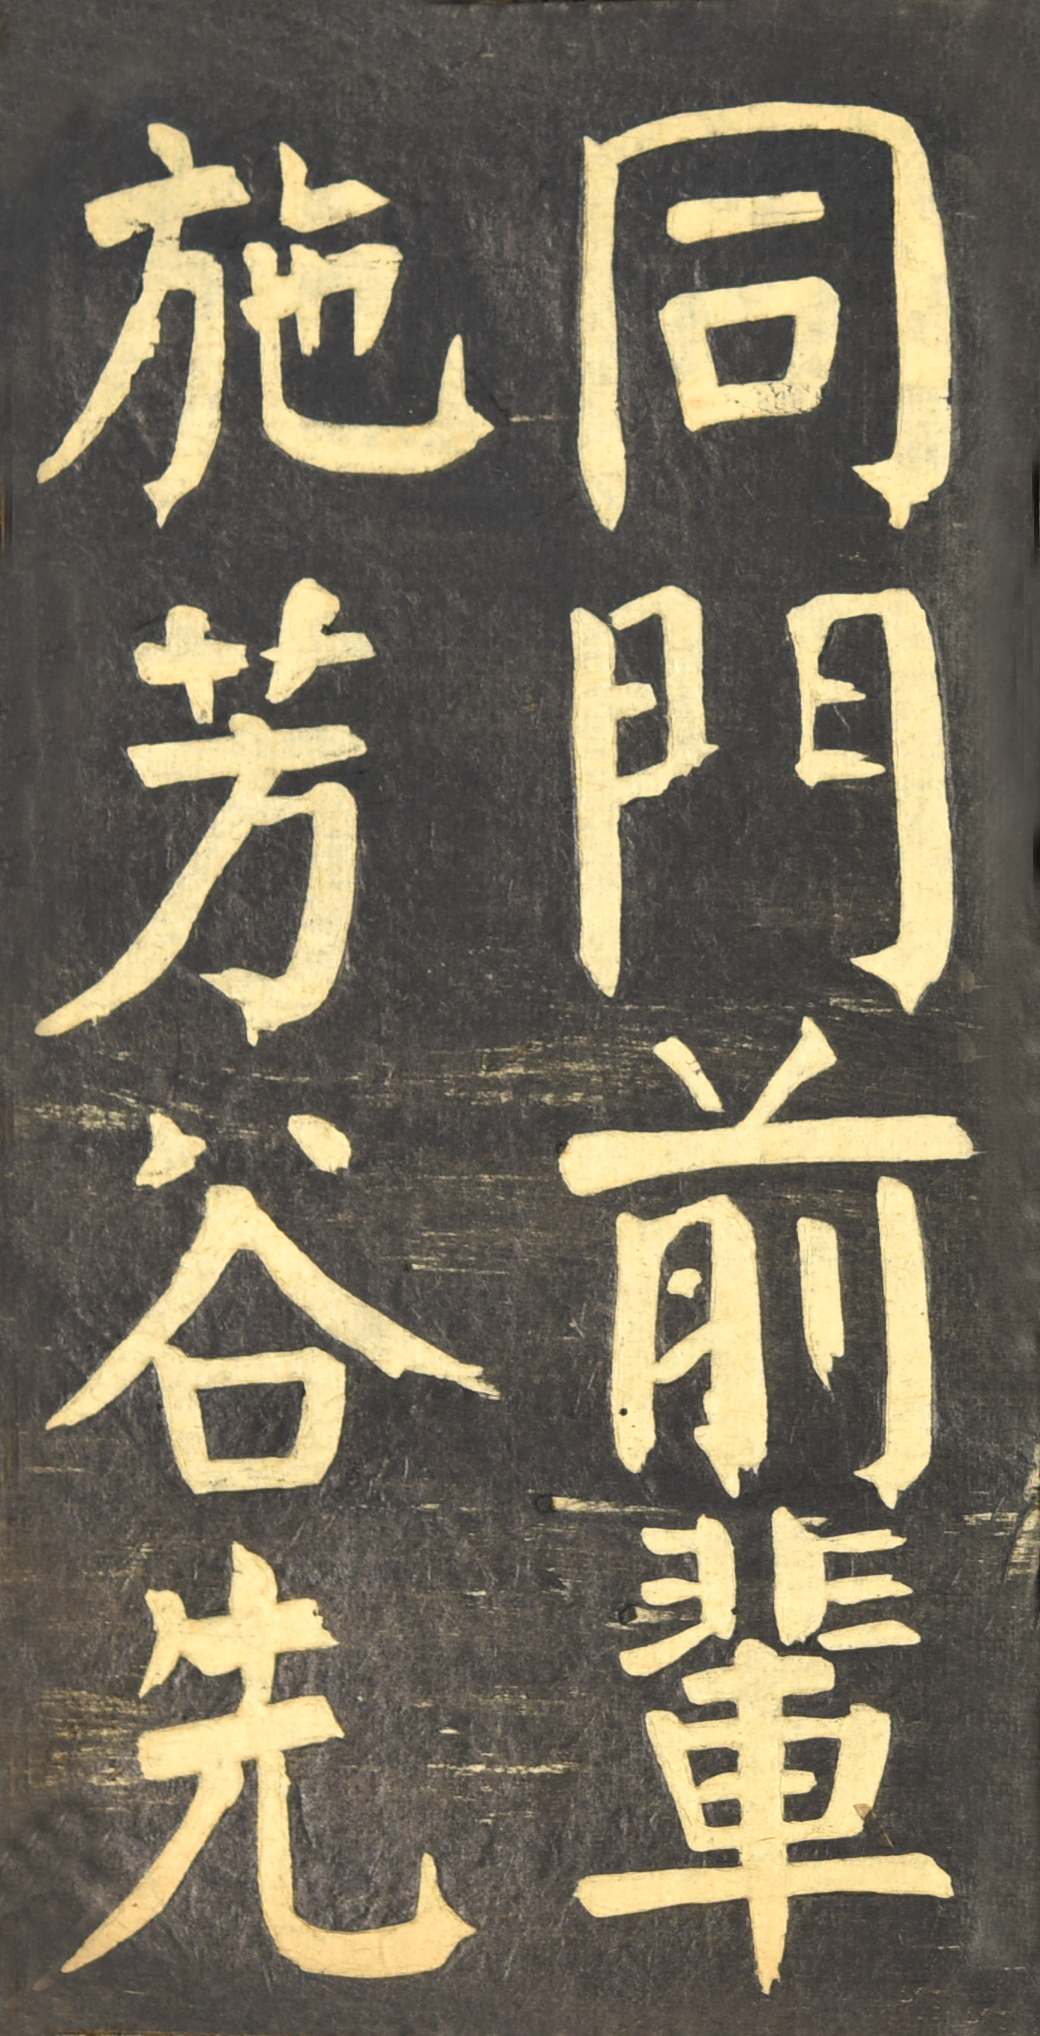 同門前輩
施芳谷先